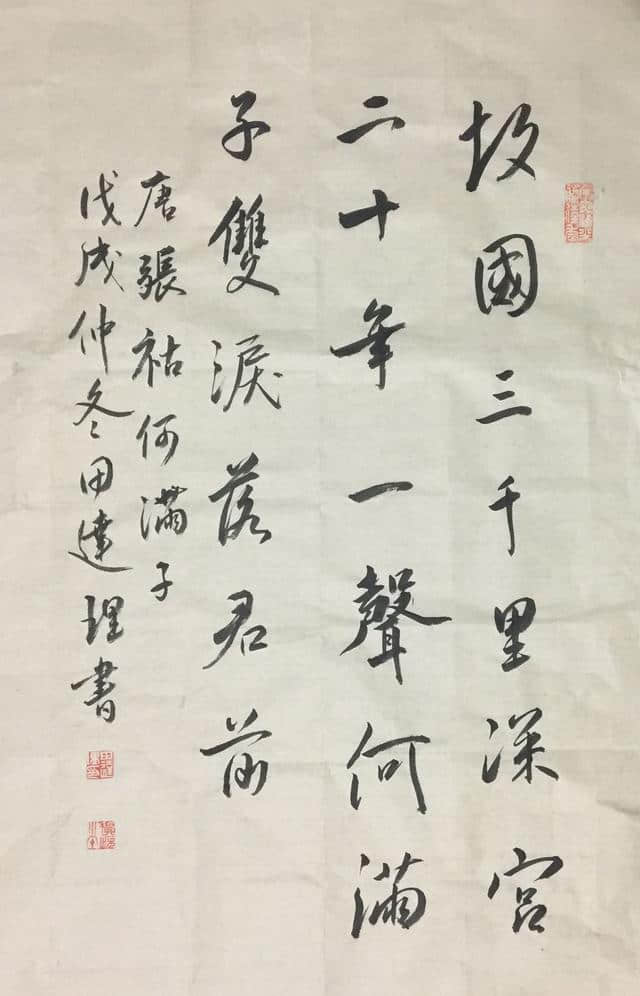 故國三千里深宮
二十年一聲何滿
子雙淚落君前
唐張祜何滿子
戊戌仲冬田達理書